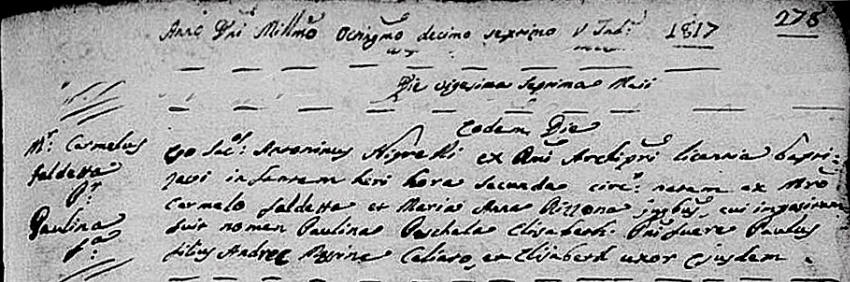 278
Anno Dni Millmo Octingmo decimo septimo V Indne 1817
Die vigesima septima Maii
Eodem Die
Mr. Carmelus Ego Sacs: Antoninus ex Dni Archiprī licentia bapti-
faldetta zavi infantem heri hora secunda circr: natam ex Mro
Carmelo faldetta et Maria Anna jugibus, cui impositum
Paulina fuit nomen Paulina Paschala Elisabeth: Pni fuere Paulus
filius Andree et Elisabeth uxor ejusdem